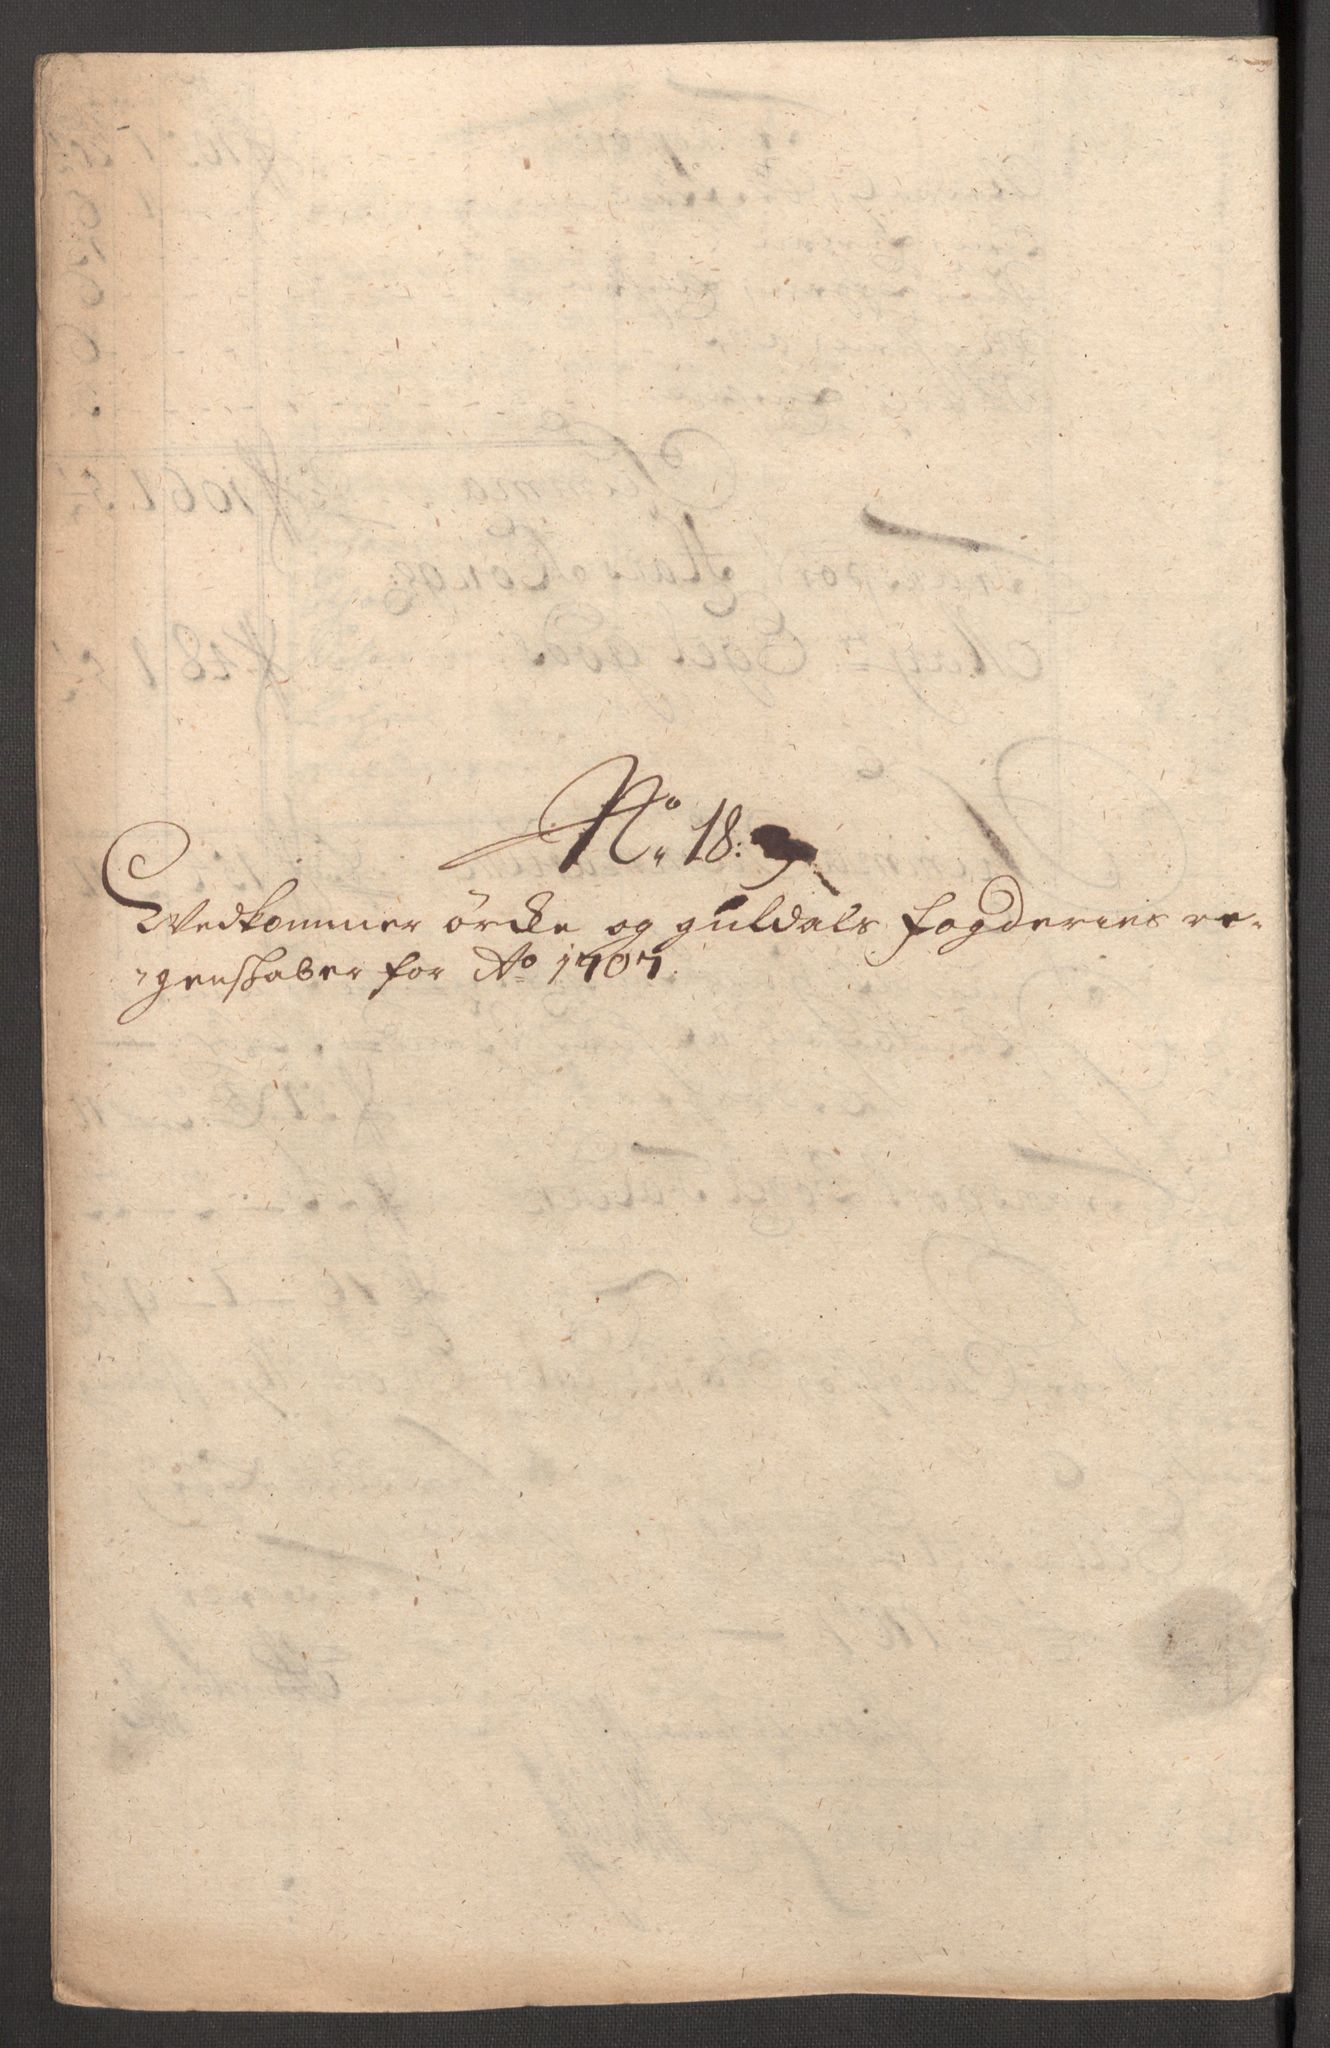 No. 18:
Vedkommer ørcke og guldals fogderies re-
genskaber for Ao 1707.